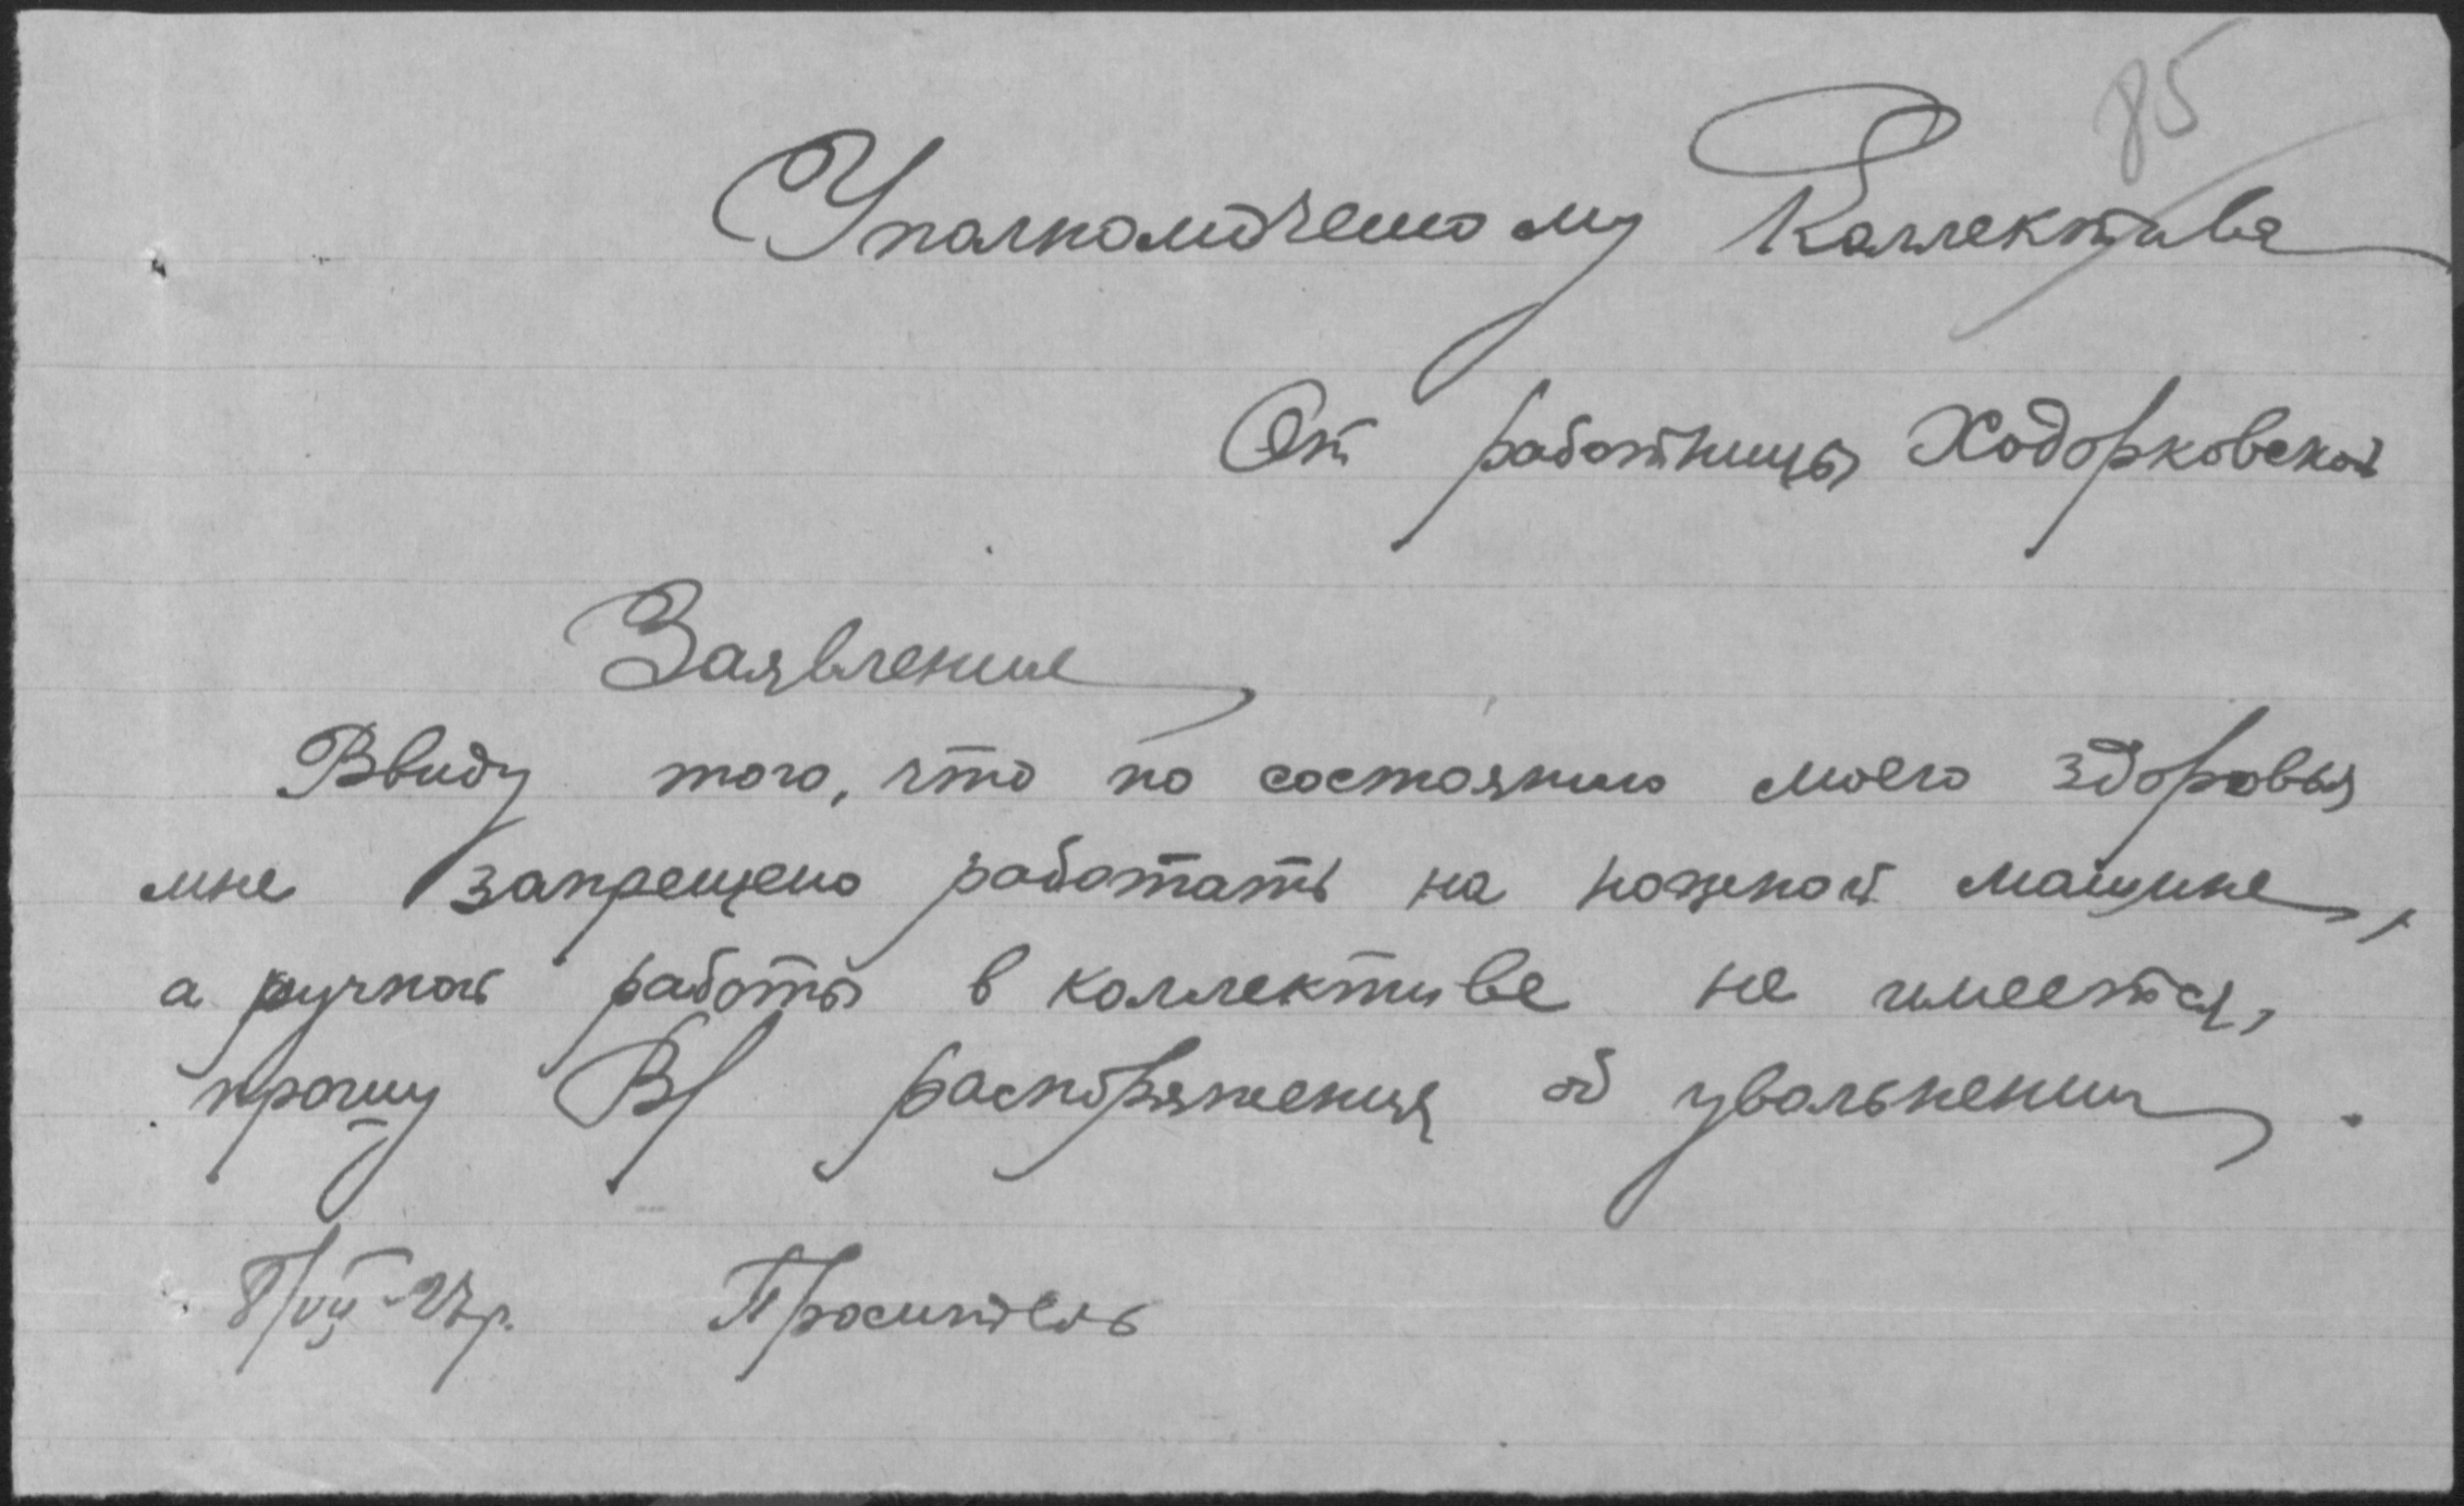 85
Уполномоченому Коллектива
От работницы Ходорковской
Заявление
Ввиду того, что по состоянию моего здоровья
мне запрещено работать на ножной машине,
а ручной работы в коллективе не имеется,
прошу В/ распоряжения об увольнении.
Проситель